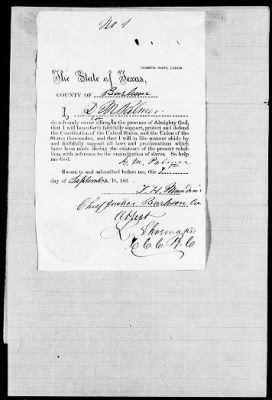 No 1
The State of Texas,
COUNTY OF Burleson
I,
do solemnly swear in the presence of Almighty God,
that I will henceforth faithfully support, protect and defend
the Constitution of the United States, and the Union of the
States thereunder, and that I will in like manner abide by
and faithfully support all laws and proclamations which
have been made during the existence of the present rebel-
lion, with reference to the emancipation of slaves. So help
me God.
Palmer
Sworn to and subscribed before me, this
day of September 18, 186
T. H. Mundine
Chief Justice Burleson Co
Attest
L. Thomas
C C C B C